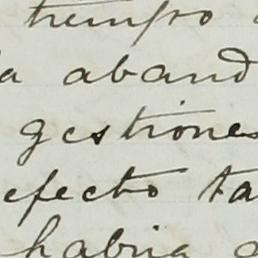 tiempo
a aband
gestiones
efecto ta
habria